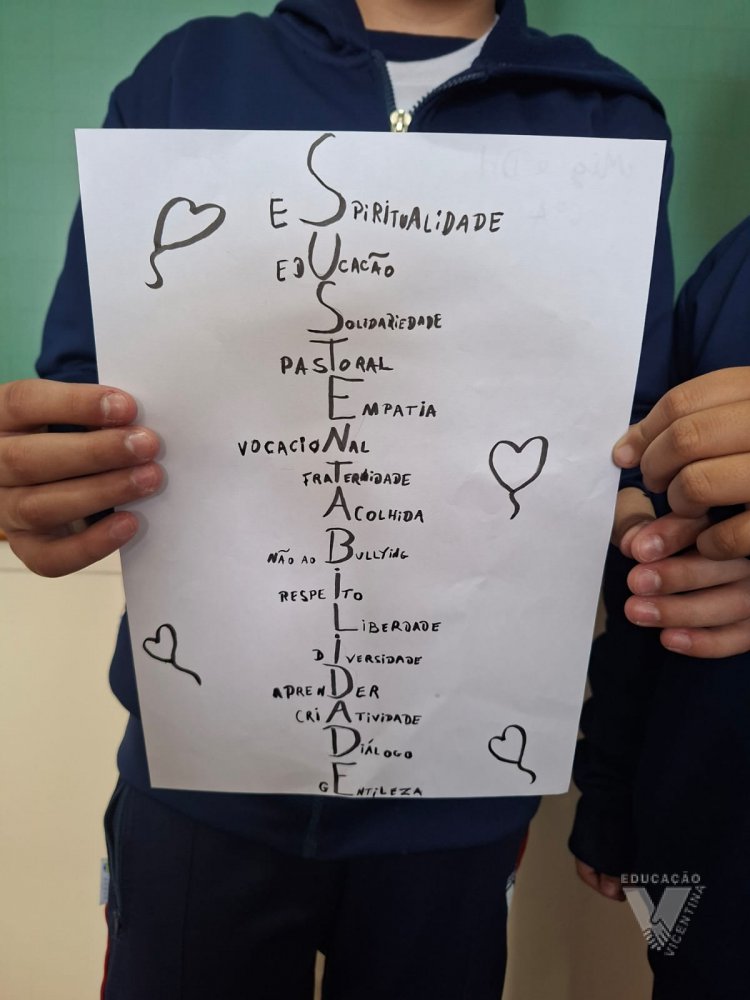 ESPIRITUALIDADE
EDUCAÇÃO
SOLIDARIEDADE
PASTORAL
EMPATIA
VOCACIONAL
FRATERNIDADE
ACOLHIDA
NÃO AO BULLYING
RESPEITO
LIBERDADE
DIVERSIDADE
APRENDER
CRIATIVIDADE
DIÁLOGO
GENTILEZA
EDUCAÇÃO
VICENTINA